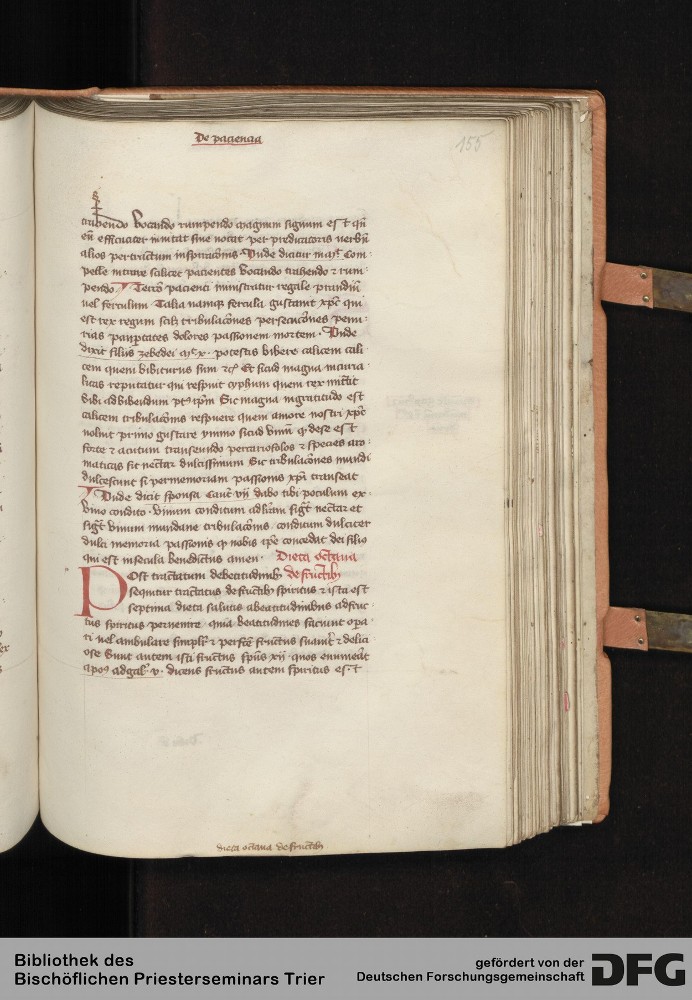 De paciencia
155
trahendo vocando rumpendo magnum signum est qn̄
en̄ efficaciter mutat sine notat per predicatoris verbū
alios per trictum inspiracōnis · Vnde dicitur mat͛ Com
pelle intrare scilicet pacientes vocando trahendo ⁊ rum
pendo Tercō pacienti ministratur regale prandiū
vel ferculum · Talia namque fercula gustauit xp̄c qui
est rex regum scilȝ tribulacōnes persecucōnes penu
rias paupertates dolores passionem mortem · Vnde
dixit filiis zebedei mͨ x · potestis bibere calicem
cem quem bibiturus sum ⁊c̄ Et sicud magna iniuria
reputatur qui respuit cyphum quem rex mittit
sibi ad bibendum ip̄m Sic magna ingratitudo est
calicem tribulacōnis respuere quem amore nostri xp̄c
voluit primo gustare ymmo sicud vinū qͥ de se est
forte ⁊ acutum transeundo per ⁊ species aro
maticas fit nectar dulcissimum Sic tribulacōnes mundi
dulcescunt si per memoriam passionis xp̄i transeat
Vnde dicit sponsa Cant͛ vij dabo tibi poculum ex
vino condito · vinum conditum nectar et
vinum mundane tribulacōnis conditum dulciter
dulci memoria passionis qͥ nobis ip̄e concedat dei filio
qui est in secula benedictus amen · Dieta octaua
Post tractatum de beatitudinibȝ de fructibȝ
sequitur tractatus de fructibȝ spiritus ⁊ ista est
septima dieta salutis a beatitudinibus ad fruc
tus spiritus peruenire quia beatitudines faciunt opa
ri vel ambulare simplr̄ ⁊ perfcē fructus suauit͛ ⁊ delici
ose Sunt autem isti fructus sp̄us xij quos enumeat
apoͨ ad gal͛ v · dicens fructus autem spiritus est
dieta octaua de fructibȝ
Bibliothek des
Bischöflichen Priesterseminars Trier
gefördert von der
Deutschen Forschungsgemeinschaft
DFG